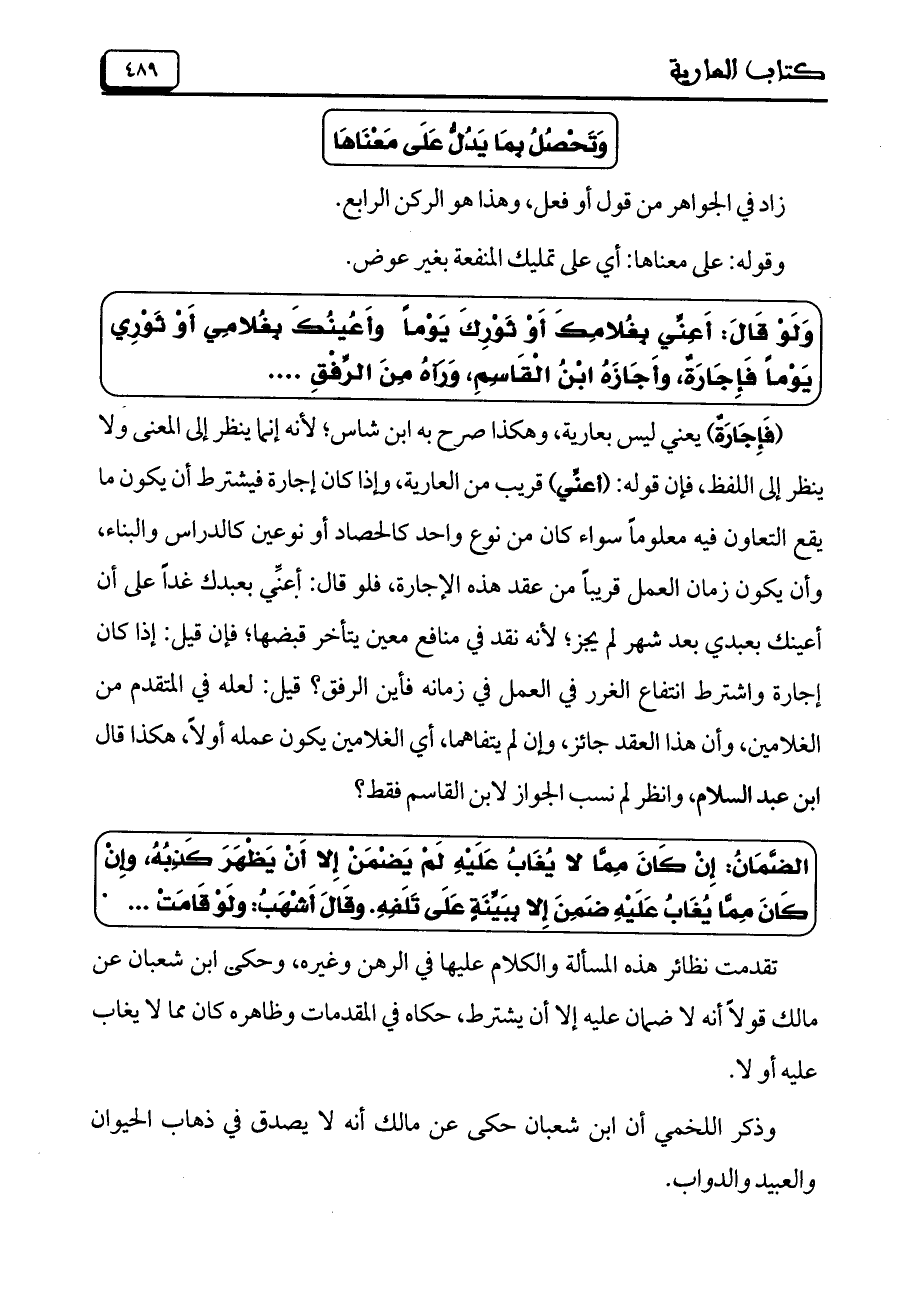 كتاب العارية
٤٨٩
وَتَحْصُلُ بِمَا يَدُلُّ عَلَى مَعْنَاهَا
زاد في الجواهر من قول أو فعل، وهذا هو الركن الرابع.
وقوله: على معناها: أي على تمليك المنفعة بغير عوض.
وَلَوْ قَالَ: أَعِنِّي بِغُلامِكَ أَوْ ثَوْرِكَ يَوْماً وأُعينُكَ بِغُلامِي أَوْ ثَوْرِي
يَوْماً فَإِجَارَةٌ، وأَجَازَهُ ابْنُ الْقَاسِمِ، ورَآهُ مِنَ الرِّفْقِ ....
(فَإِجَارَةٌ) يعني ليس بعارية، وهكذا صرح به ابن شاس؛ لأنه إنما ينظر إلى المعنى ولا
ينظر إلى اللفظ، فإن قوله: (أعنِّي) قريب من العارية، وإذا كان إجارة فيشترط أن يكون ما
يقع التعاون فيه معلوماً سواء كان من نوع واحد كالحصاد أو نوعين كالدراس والبناء،
وأن يكون زمان العمل قريباً من عقد هذه الإجارة، فلو قال: أعنِّي بعبدك غداً على أن
أعينك بعبدي بعد شهر لم يجز؛ لأنه نقد في منافع معين يتأخر قبضها؛ فإن قيل: إذا كان
إجارة واشترط انتفاع الغرر في العمل في زمانه فأين الرفق؟ قيل: لعله في المتقدم من
الغلامين، وأن هذا العقد جائز، وإن لم يتفاهما، أي الغلامين يكون عمله أولاً، هكذا قال
ابن عبد السلام، وانظر لم نسب الجواز لابن القاسم فقط؟
الضَّمَانُ: إِنْ كَانَ مِمَّا لا يُغَابُ عَلَيْهِ لَمْ يَضْمَنْ إِلا أَنْ يَظْهَرَ كَذِبُهُ، وإِنْ
كَانَ مِمَّا يُغَابُ عَلَيْهِ ضَمِنَ إِلا بِبَيِّنَةٍ عَلَى تَلَفِهِ. وقَالَ أَشْهَبُ: ولَوْ قَامَتْ ...
تقدمت نظائر هذه المسألة والكلام عليها في الرهن وغيره، وحكى ابن شعبان عن
مالك قولاً أنه لا ضمان عليه إلا أن يشترط، حكاه في المقدمات وظاهره كان مما لا يغاب
عليه أو لا.
وذكر اللخمي أن ابن شعبان حكى عن مالك أنه لا يصدق في ذهاب الحيوان
والعبيد والدواب.